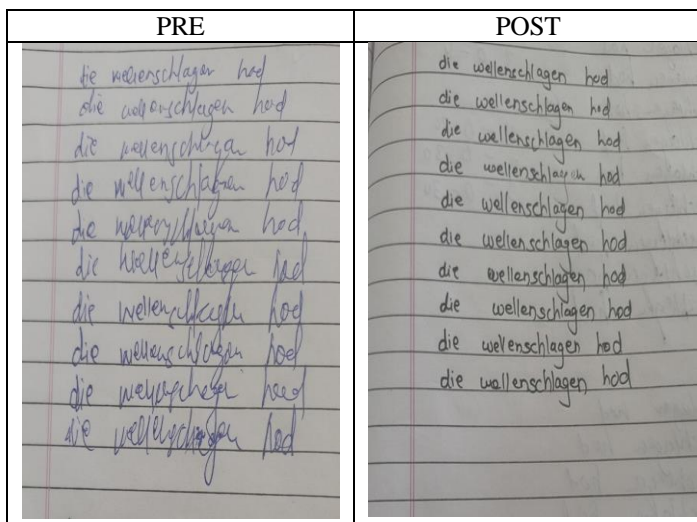 PRE
die wellenschlagen hod
die wellenschlagen hod
die wellenschlagen hod
die wellenschlagen hod
die hod
die hod
die wellenschlagen hod
die wellenschlagen hod
die hod
die hod
POST
die wellenschlagen hod
die wellenschlagen hod
die wellenschlagen hod
die wellenschlagen hod
die wellenschlagen hod
die wellenschlagen hod
die wellenschlagen hod
die wellenschlagen hod
die wellenschlagen hod
die wallenschlagen hod